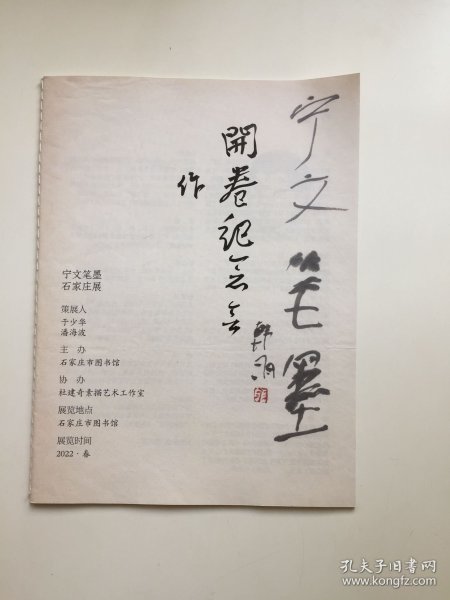 宁文笔墨
開卷紀念
作
宁文笔墨
石家庄展
策展人
于少华
潘海波
主 办
石家庄市图书馆
协 办
杜建奇素描艺术工作室
展览地点
石家庄市图书馆
展览时间
2022·春
孔夫子旧书网
www.kongfz.com